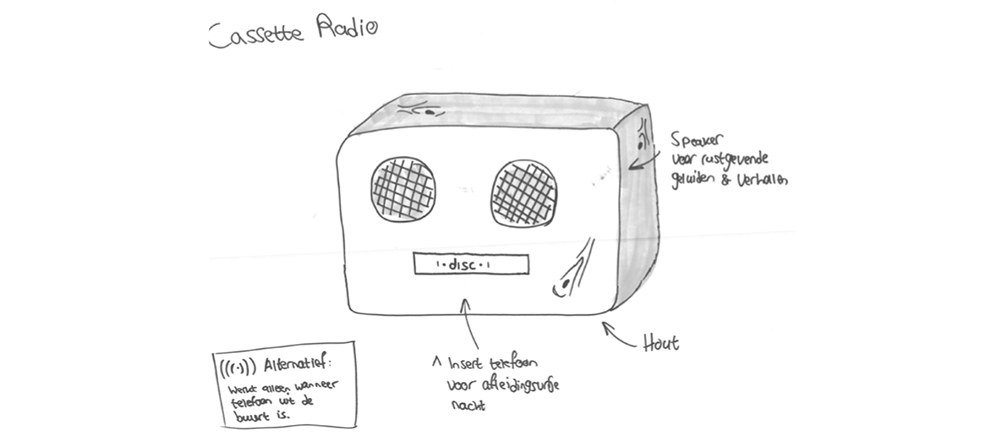 Cassette Radio
Speaker
voor rustgevende
geluiden & verhalen
disc
Hout
^ Insert telefoon
voor afleidingsvrije
nacht
(((·))) Alternatief:
Werkt alleen wanneer
telefoon uit de
buurt is.